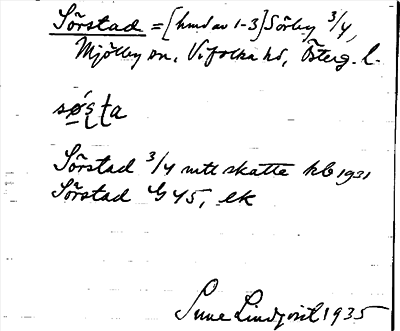 Sörstad = [hmd av 1-3] Sörby 3/4,
Mjölby sn, Vifolka hd, Österg. l.
sø̀ṣṭa
Sörstad 3/4 mtl skatte hb 1931
Sörstad G 45, ek
Sune Lindqvist 1935